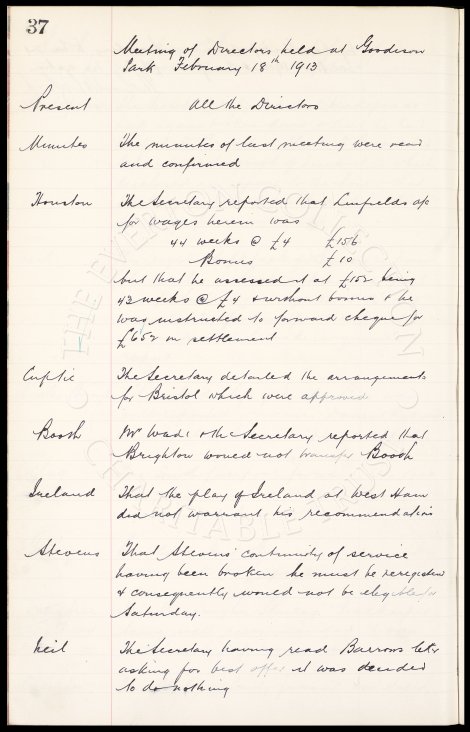 37
Meeting of Directors held at Goodison
Park February 18th 1913
Present All the Directors
Minutes The minutes of last meeting were read
and confirmed
Houston The Secretary reported that Linfields a/c
for wages herein was
44 weeks @ £4 £156
Bonus £10
but that he assessed it at £152 being
42 weeks @ £4 & without bonus & he
was instructed to forward cheque for
£652 in settlement
Cuptie The Secretary detailed the arrangements
for Bristol which were approved
Booth Mr Wade & the Secretary reported that
Brighton would not transfer Booth
Ireland That the play of Ireland at West Ham
did not warrant his recommendation
Stevens That Stevens' continuity of service
having been broken he must be reregistered
& consequently would not be eligible for
Saturday.
Neil The Secretary having read Barrows letter
asking for best offer it was decided
to do nothing
THE EVERTON COLLECTION
CHARITABLE TRUST